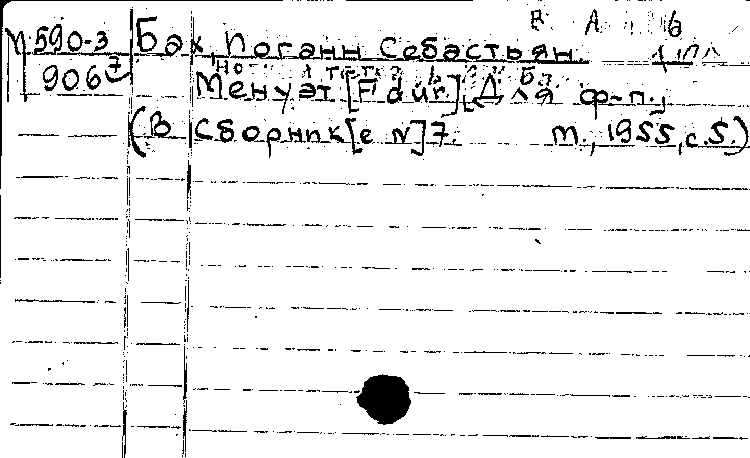 М 590-3 Бах, Иоганн Себастьян.
906⁷ Менуэт [F dur]. Для ф-п.,
(В Сборник[е №]7. М., 1955, с.5.)